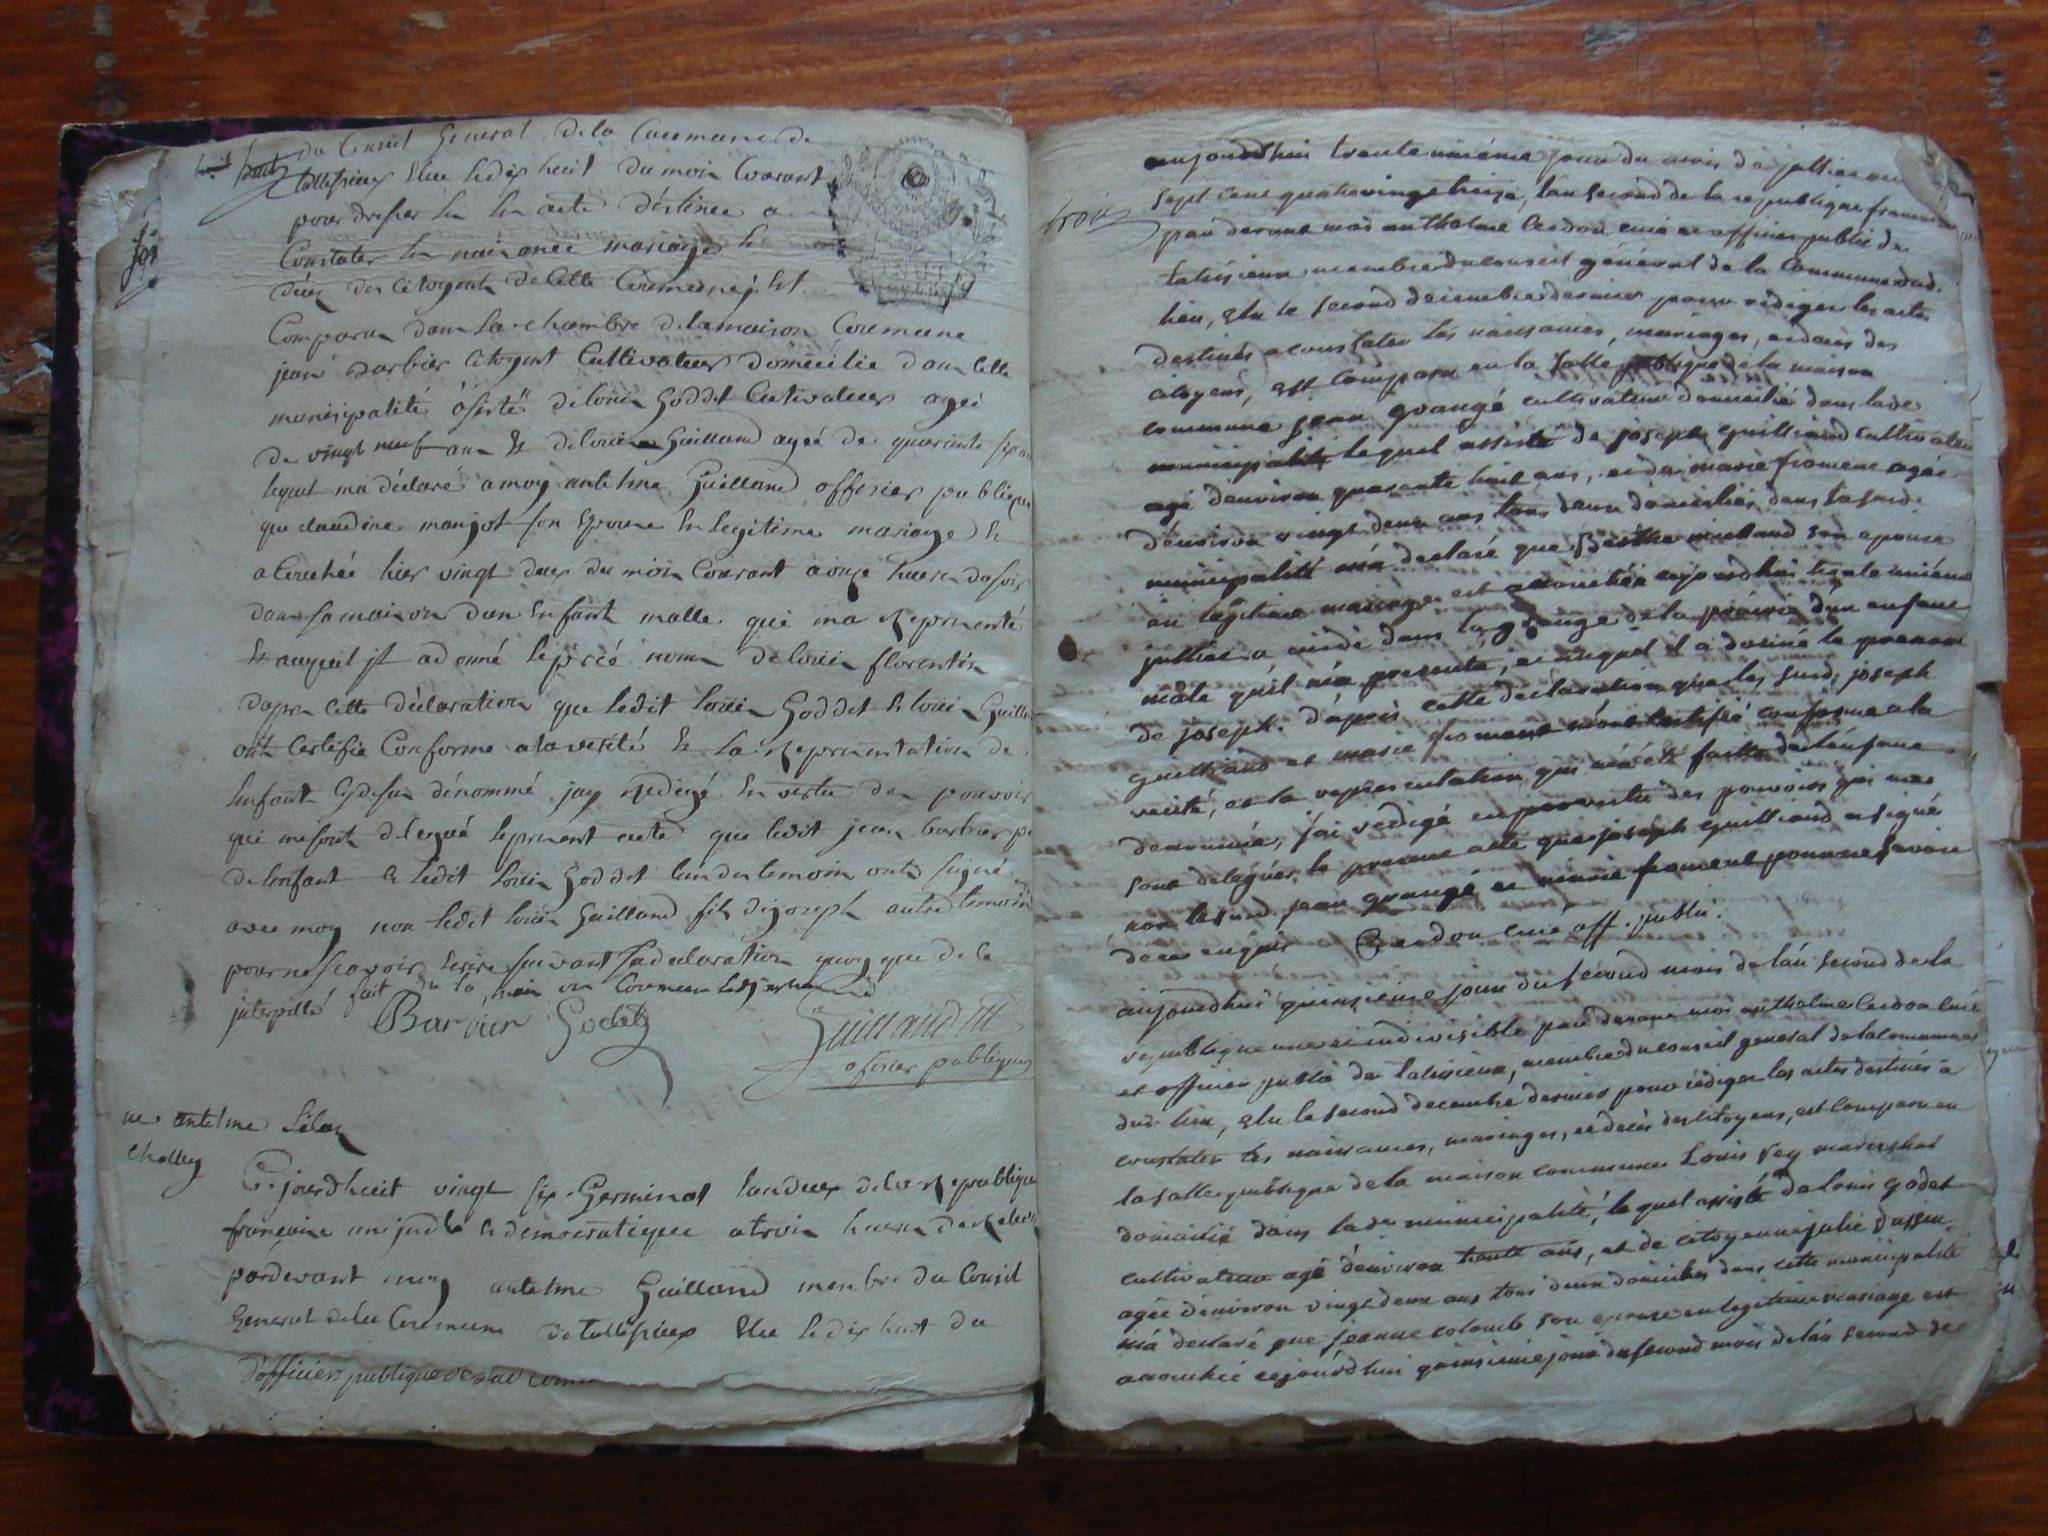 huit
du Conseil General de la Commune de
tallissieux Elue le dix huit du moin Courant
pour dresser les acte destinee a
Constater les naisance mariage et
décès des Citoyent de Cette Commune est
Comparu dans la chambre de la maison Commune
jean barbier Citoyent Cultivateur domicilie dans Cette
municipalité assisté de loüis Goddet Cultivateur agee
de vingt neuf ans Et de loüis Guilland ageé de quarante six ans
lequel ma déclaré a moy antelme Guilland officier publique
que claudine manjot son Epouse En legitime mariage Et
acouchée hier vingt deux du moin Courant a onze heure du soir
dans sa maison dun Enfant malle que ma Représenté
Et auquel jl a donné le prée nom de loüis florentin
dapres Cette déclaration que ledit loüis Goddet Et loüis Guilla
ont Certifie Conforme a la verité Et la Représentation de
lenfant Cydessus dénommé jay Redigé En vertu des pouvoir
qui me sont délegué le présent acte que ledit jean barbier p
de lenfant Et ledit loüis Goddet lun des temoin onts signé
avec moy non ledit loüis Guilland fils de joseph autre temoin
pour ne scavoir Ecrire suivant sa declaration quoy que de ce
interpellé fait En la maison Commune
Barbier Godet Guilland
officier publique
antelme
Cejourdhuit vingt six Germinal lan deux de la Republique
françoise une jndi et democratique a trois heure
pardevant moy antelme Guilland membre du Conseil
General de la Commune de tallissieux Elue le dix huit du
d'officier publique
trois
aujourd'hui trente unième jour du mois de juillet mil
sept cent quatrevingt treize, l'an second de la république francoi
par devant moi anthelme Cerdon curé et officier public de
talissieux membre du conseil général de la Commune dud.
lieu, elu le second décembre dernier pour rédiger les actes
destinés a constater les naissances, mariages, et décès des
citoyens, est Comparu en la salle publique de la maison
commune jean grangé cultivateur domicilié dans lade
municipalité lequel assisté de joseph guilliand cultivateur
agé d'environ quarante huit ans, et de marie froment agée
d'environ vingt deux ans tous deux domiciliés dans la sud.
municipalité m'a declaré que Berthe michaud son epouse
en légitime mariage est accouchée aujourdhui trente unième
juillet a midi dans la grange de la prairie d'un enfant
mâle qu'il m'a présenté, et auquel il a donné le prenom
de joseph. d'après cette déclaration que les sud. joseph
guilliand et marie froment m'ont certifié conforme a la
verité, et la représentation qui m'a été faite de l'enfant
denommé, j'ai rédigé en vertu des pouvoirs qui me
sont delégués, le présent acte que joseph guilliand a signé
non les sud. jean grangé et marie froment pour ne savoir
de ce enquis Cerdon curé off. public.
aujourdhui quinzieme jour du second mois de l'an second de la
republique une et indivisible par devant moi anthelme Cerdon curé
et officier public de talissieux, membre du conseil general de la commune
dud. lieu, elu le second decembre dernier pour rédiger les actes destinés a
constater les naissances, mariages, et décès des citoyens, est comparu en
la salle publique de la maison commune Louis Vey marechal
domicilié dans lade municipalité, lequel assisté de Louis godet
cultivateur agé d'environ trente ans, et de citoyenne julie
agée d'environ vingt deux ans tous deux domiciliés dans cette municipalité
m'a declaré que jeanne colomb son epouse en legitime mariage est
accouchée aujourd'hui quinzieme jour du second mois de l'an second de